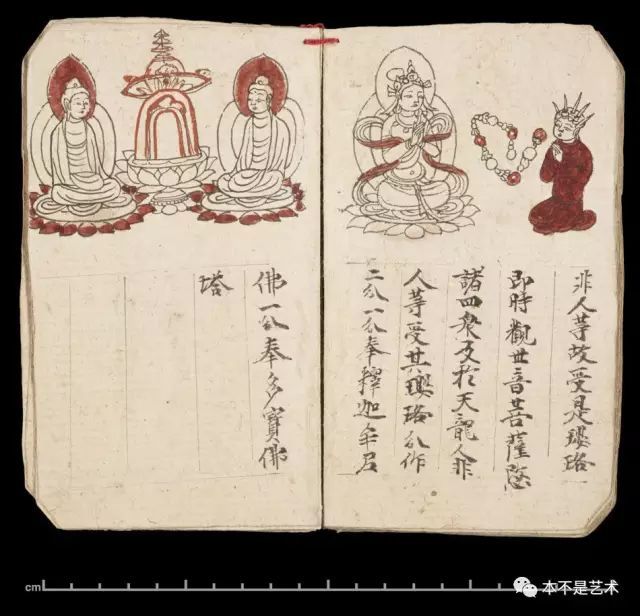 非人等故受是瓔珞
即時觀世音菩薩愍
諸四衆及於天龍人非
人等受其瓔珞分作
二分一分奉釋迦牟尼
佛一分奉多寶佛
塔
cm
本不是艺术